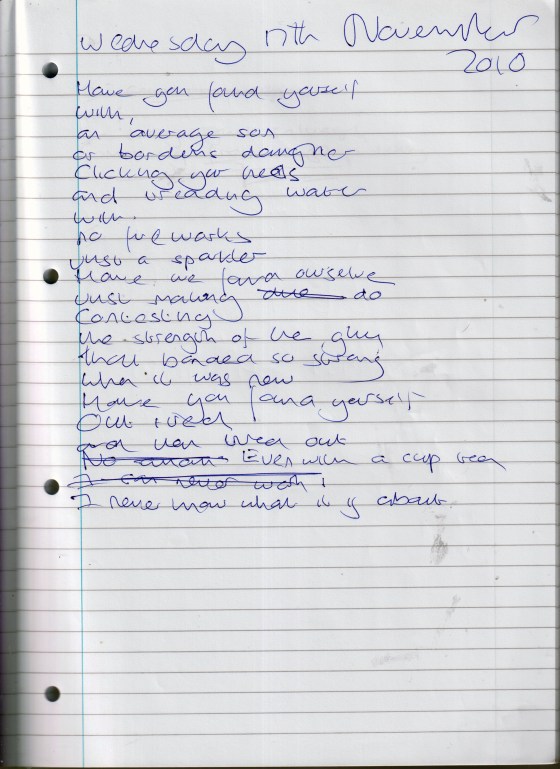 Wednesday 17th November
2010
Have you found yourself
with,
an average son
or bordens daughter
Clicking your heels
and treading water
with
no fireworks
Just a sparkler
Have we found ourselve
Just making due do
Contesting
the strength of the glue
that bonded so strong
when it was new
Have you found yourself
Out
and out
Even with a cup tea
I never work
I never know what it is about